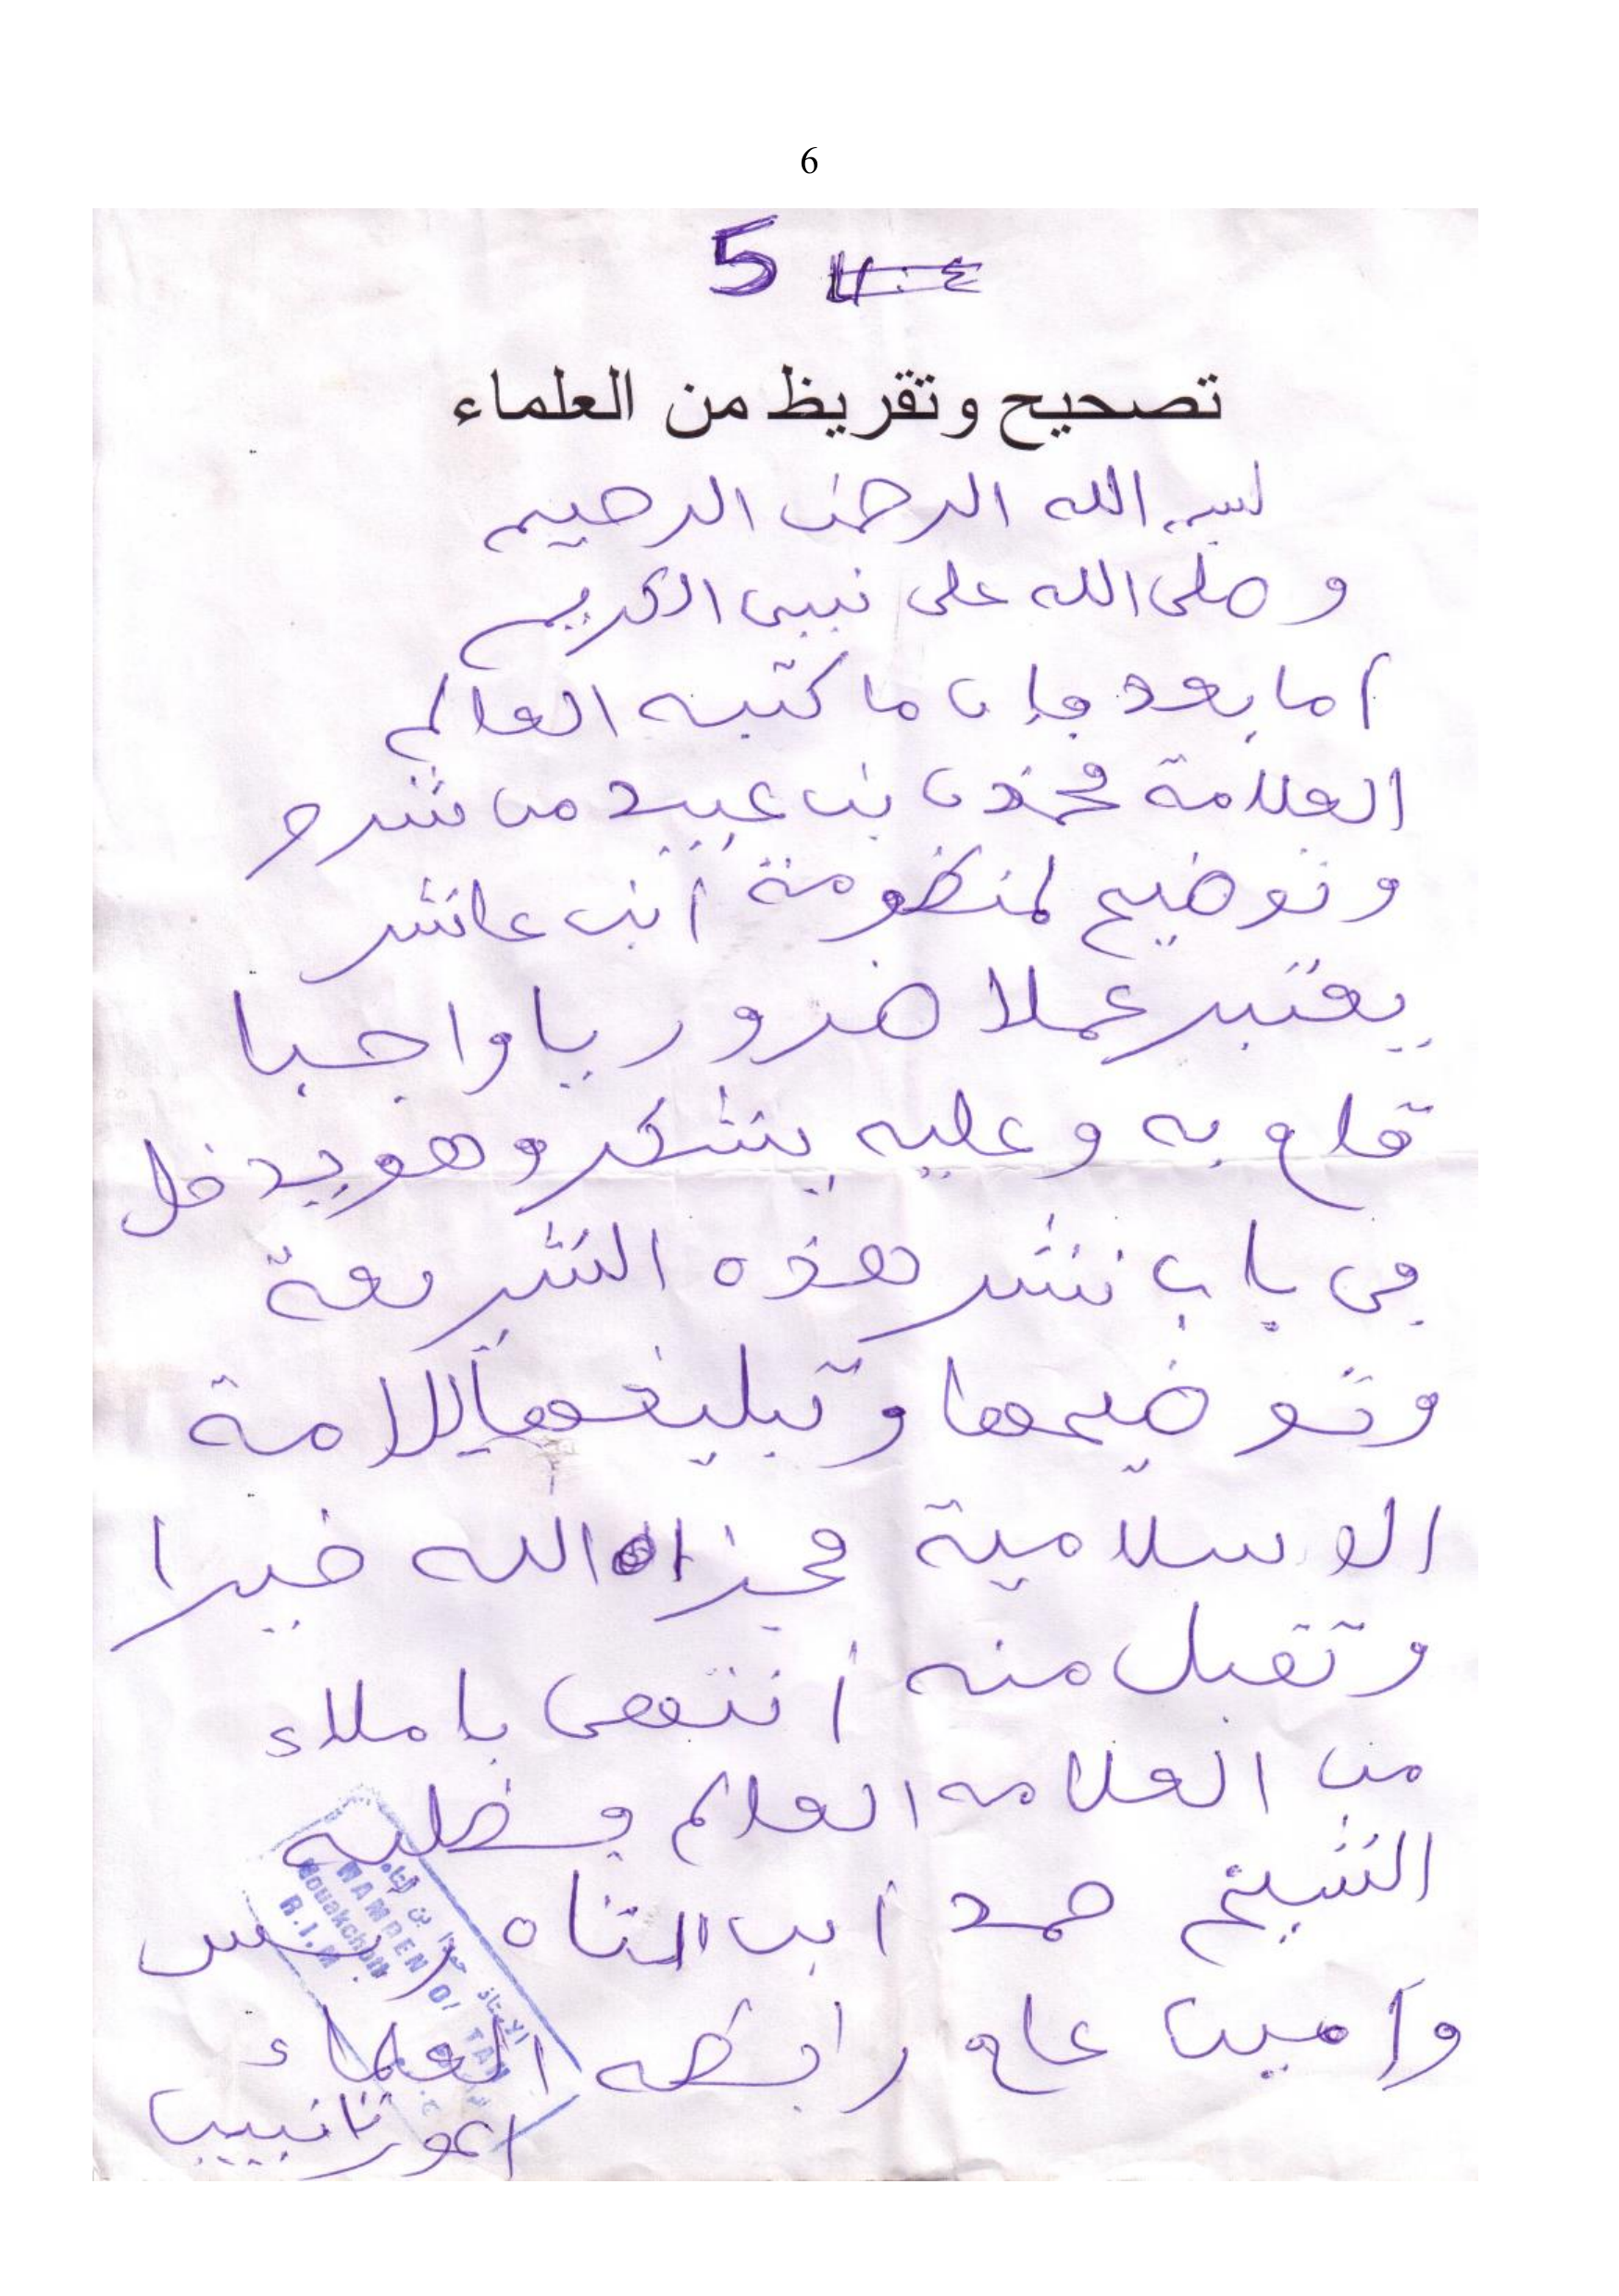 6
5
تصحيح وتقريظ من العلماء
بسم الله الرحمن الرحيم
وصلى الله على نبيى الكريم
أما بعد فإن ما كتبه العالم
العلامة محمذن بن عبيد من شرح
وتوضيح لمنظومة أبن عاشر
يعتبر عملا ضروريا واجبا
قام به وعليه يشكر وهو يدخل
في باب نشر هذه الشريعة
وتوضيحها وتبليغها للامة
الاسلامية فجزاه الله خيرا
وتقبل منه أنتهى باملاء
من العلامه العالم فضلية
الشيخ حمد أبن التاه رئيس
وأمين عام رابطه العلماء
المورتانيين
الاستاذ حمدا بن التاه
HAMDEN O/ TAH
Nouakchott
R.I.M